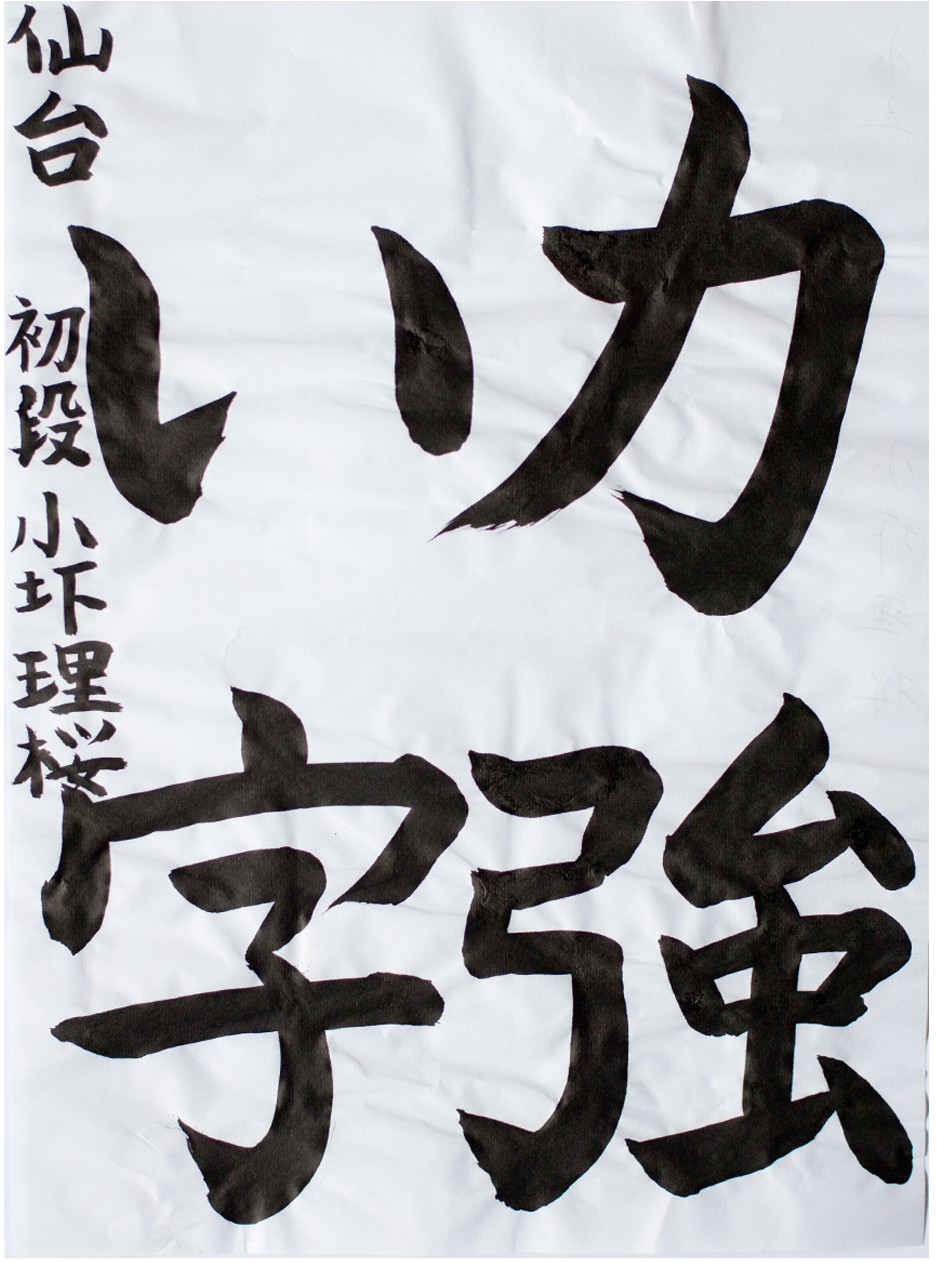 力強
い字
仙台 初段 小圷理桜